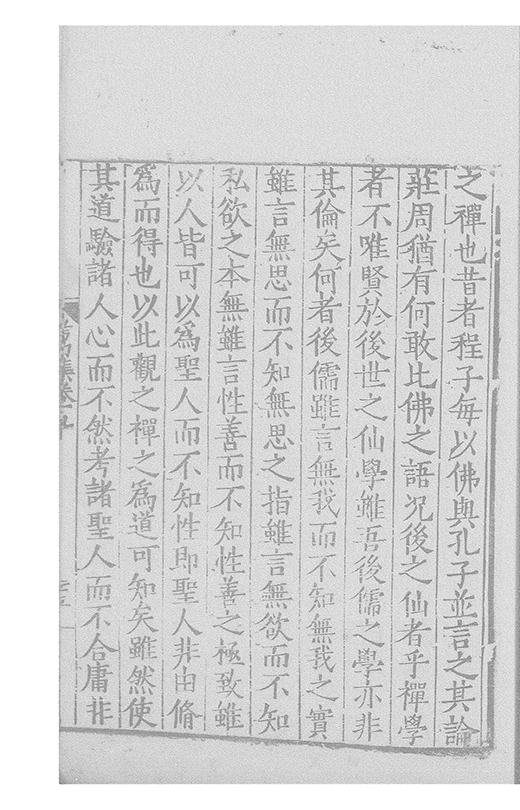 之禪也昔者程子每以佛與孔子並言之其論
莊周猶有何敢比佛之語况後之仙者乎禪學
者不唯賢於後世之仙學雖吾後儒之學亦非
其倫矣何者後儒雖言無我而不知無我之實
雖言無思而不知無思之指雖言無欲而不知
私欲之本無雖言性善而不知性善之極致雖
以人皆可以為聖人而不知性即聖人非由脩
為而得也以此觀之禪之為道可知矣雖然使
其道驗諸人心而不然考諸聖人而不合庸非